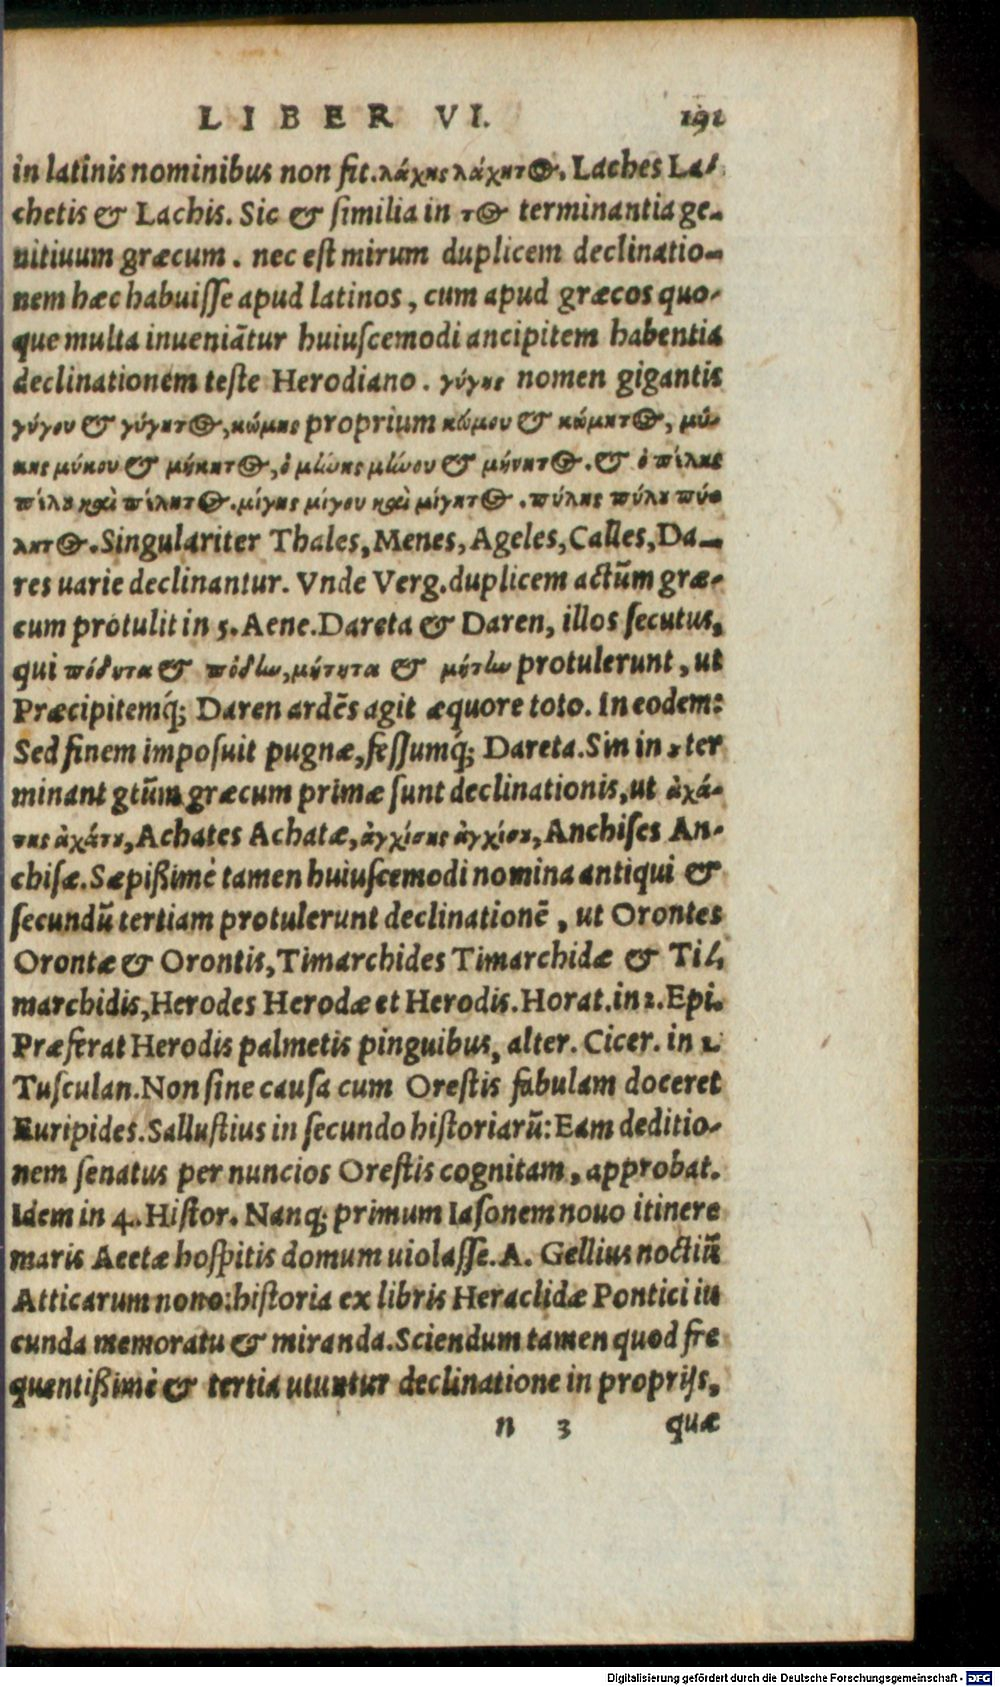 LIBER VI. 191
in latinis nominibus non fit. λάχης λάχητος. Laches La-
chetis & Lachis. Sic & similia in τος terminantia ge-
nitiuum græcum. nec est mirum duplicem declinatio-
nem hæc habuisse apud latinos, cum apud græcos quo-
que multa inueniãtur huiuscemodi ancipitem habentia
declinationem teste Herodiano. γύγης nomen gigantis
γύγου & γύγητος, κώμης proprium κώμου & κώμητος, μύ-
κης μύκου & μήκητος, ὁ μωύης μωύου & μήνητος. & ὁ πίλης
πίλου καὶ πίλητος. μίγης μίγου καὶ μίγητος. πύλης πύλου πύ-
λητος. Singulariter Thales, Menes, Ageles, Calles, Da-
res uarie declinantur. Vnde Verg. duplicem actũm græ-
cum protulit in 5. Aene. Dareta & Daren, illos secutus,
qui & & protulerunt, ut
Præcipitemq́; Daren ardẽs agit æquore toto. In eodem:
Sed finem imposuit pugnæ, fessumq́; Dareta. Sin in ȣ ter
minant gtũm græcum primæ sunt declinationis, ut ἀχά-
της ἀχάτȣ, Achates Achatæ, ἀγχίσης ἀγχίσȣ, Anchises An-
chisæ. Sæpißimè tamen huiuscemodi nomina antiqui &
secundũ tertiam protulerunt declinationẽ, ut Orontes
Orontæ & Orontis, Timarchides Timarchidæ & Ti-
marchidis, Herodes Herodæ et Herodis. Horat. in 2. Epi.
Præferat Herodis palmetis pinguibus, alter. Cicer. in 1.
Tusculan. Non sine causa cum Orestis fabulam doceret
Euripides. Sallustius in secundo historiarũ: Eam deditio-
nem senatus per nuncios Orestis cognitam, approbat.
Idem in 4. Histor. Nanq; primum Iasonem nouo itinere
maris Aeetæ hospitis domum uiolasse. A. Gellius noctiũ
Atticarum nono: historia ex libris Heraclidæ Pontici iu
cunda memoratu & miranda. Sciendum tamen quod fre
quentißimè & tertia utuntur declinatione in proprijs,
n 3 quæ
Digitalisierung gefördert durch die Deutsche Forschungsgemeinschaft - DFG